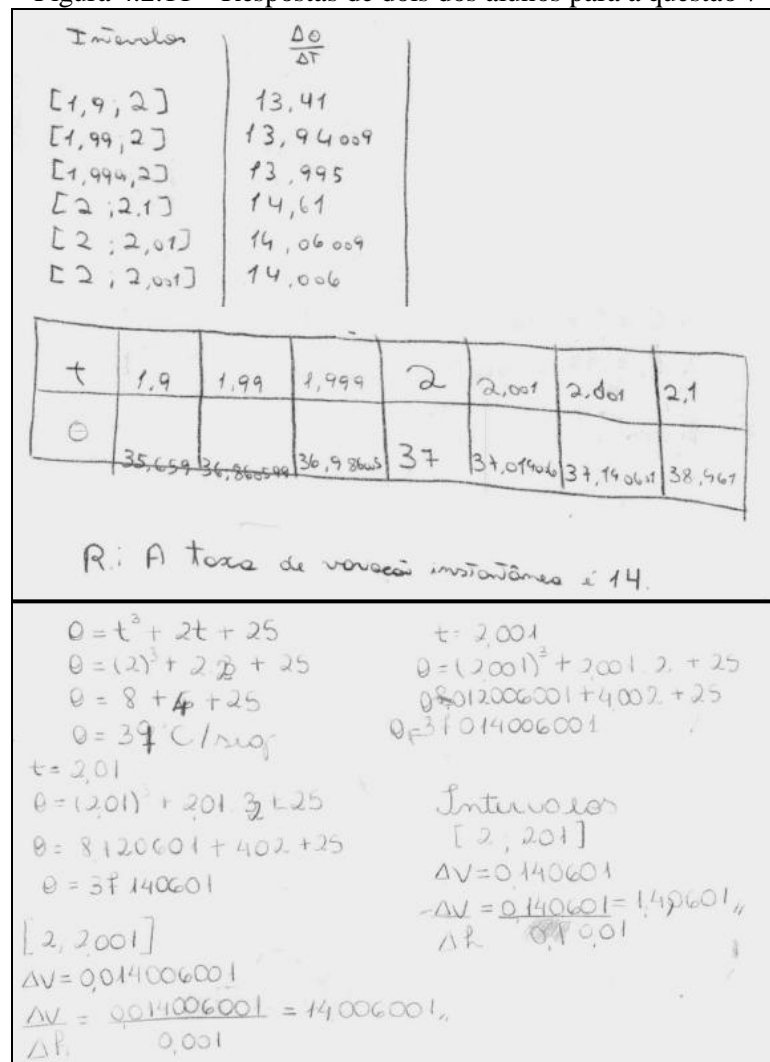 Figura 4.2.11 – Respostas de dois dos alunos para a questão 7
Intervalos | Δθ/ΔT
[1,9 ; 2] | 13,41
[1,99 ; 2] | 13,94009
[1,999, 2] | 13,995
[2 ; 2,1] | 14,61
[2 ; 2,01] | 14,06009
[2 ; 2,001] | 14,006
t | 1,9 | 1,99 | 1,999 | 2 | 2,001 | 2,001 | 2,1
θ | 35,659 | 36,860599 | 36,986005 | 37 | 37,014006 | 37,140601 | 38,461
R: A taxa de variação instantânea é 14.
θ = t³ + 2t + 25
θ = (2)³ + 2.2 + 25
θ = 8 + 4 + 25
θ = 37 C/seg
t = 2,01
θ = (2,01)³ + 2,01. 2 + 25
θ = 8,120601 + 4,02 + 25
θ = 37,140601
[2, 2,001]
ΔV = 0,014006001
ΔV/Δh = 0,014006001/0,001 = 14,006001,,
t = 2,001
θ = (2,001)³ + 2,001. 2. + 25
θ = 8,012006001 + 4,002 + 25
θ = 37,014006001
Intervalos
[2, 2,01]
ΔV = 0,140601
ΔV/Δh = 0,140601/0,01 = 14,0601,,